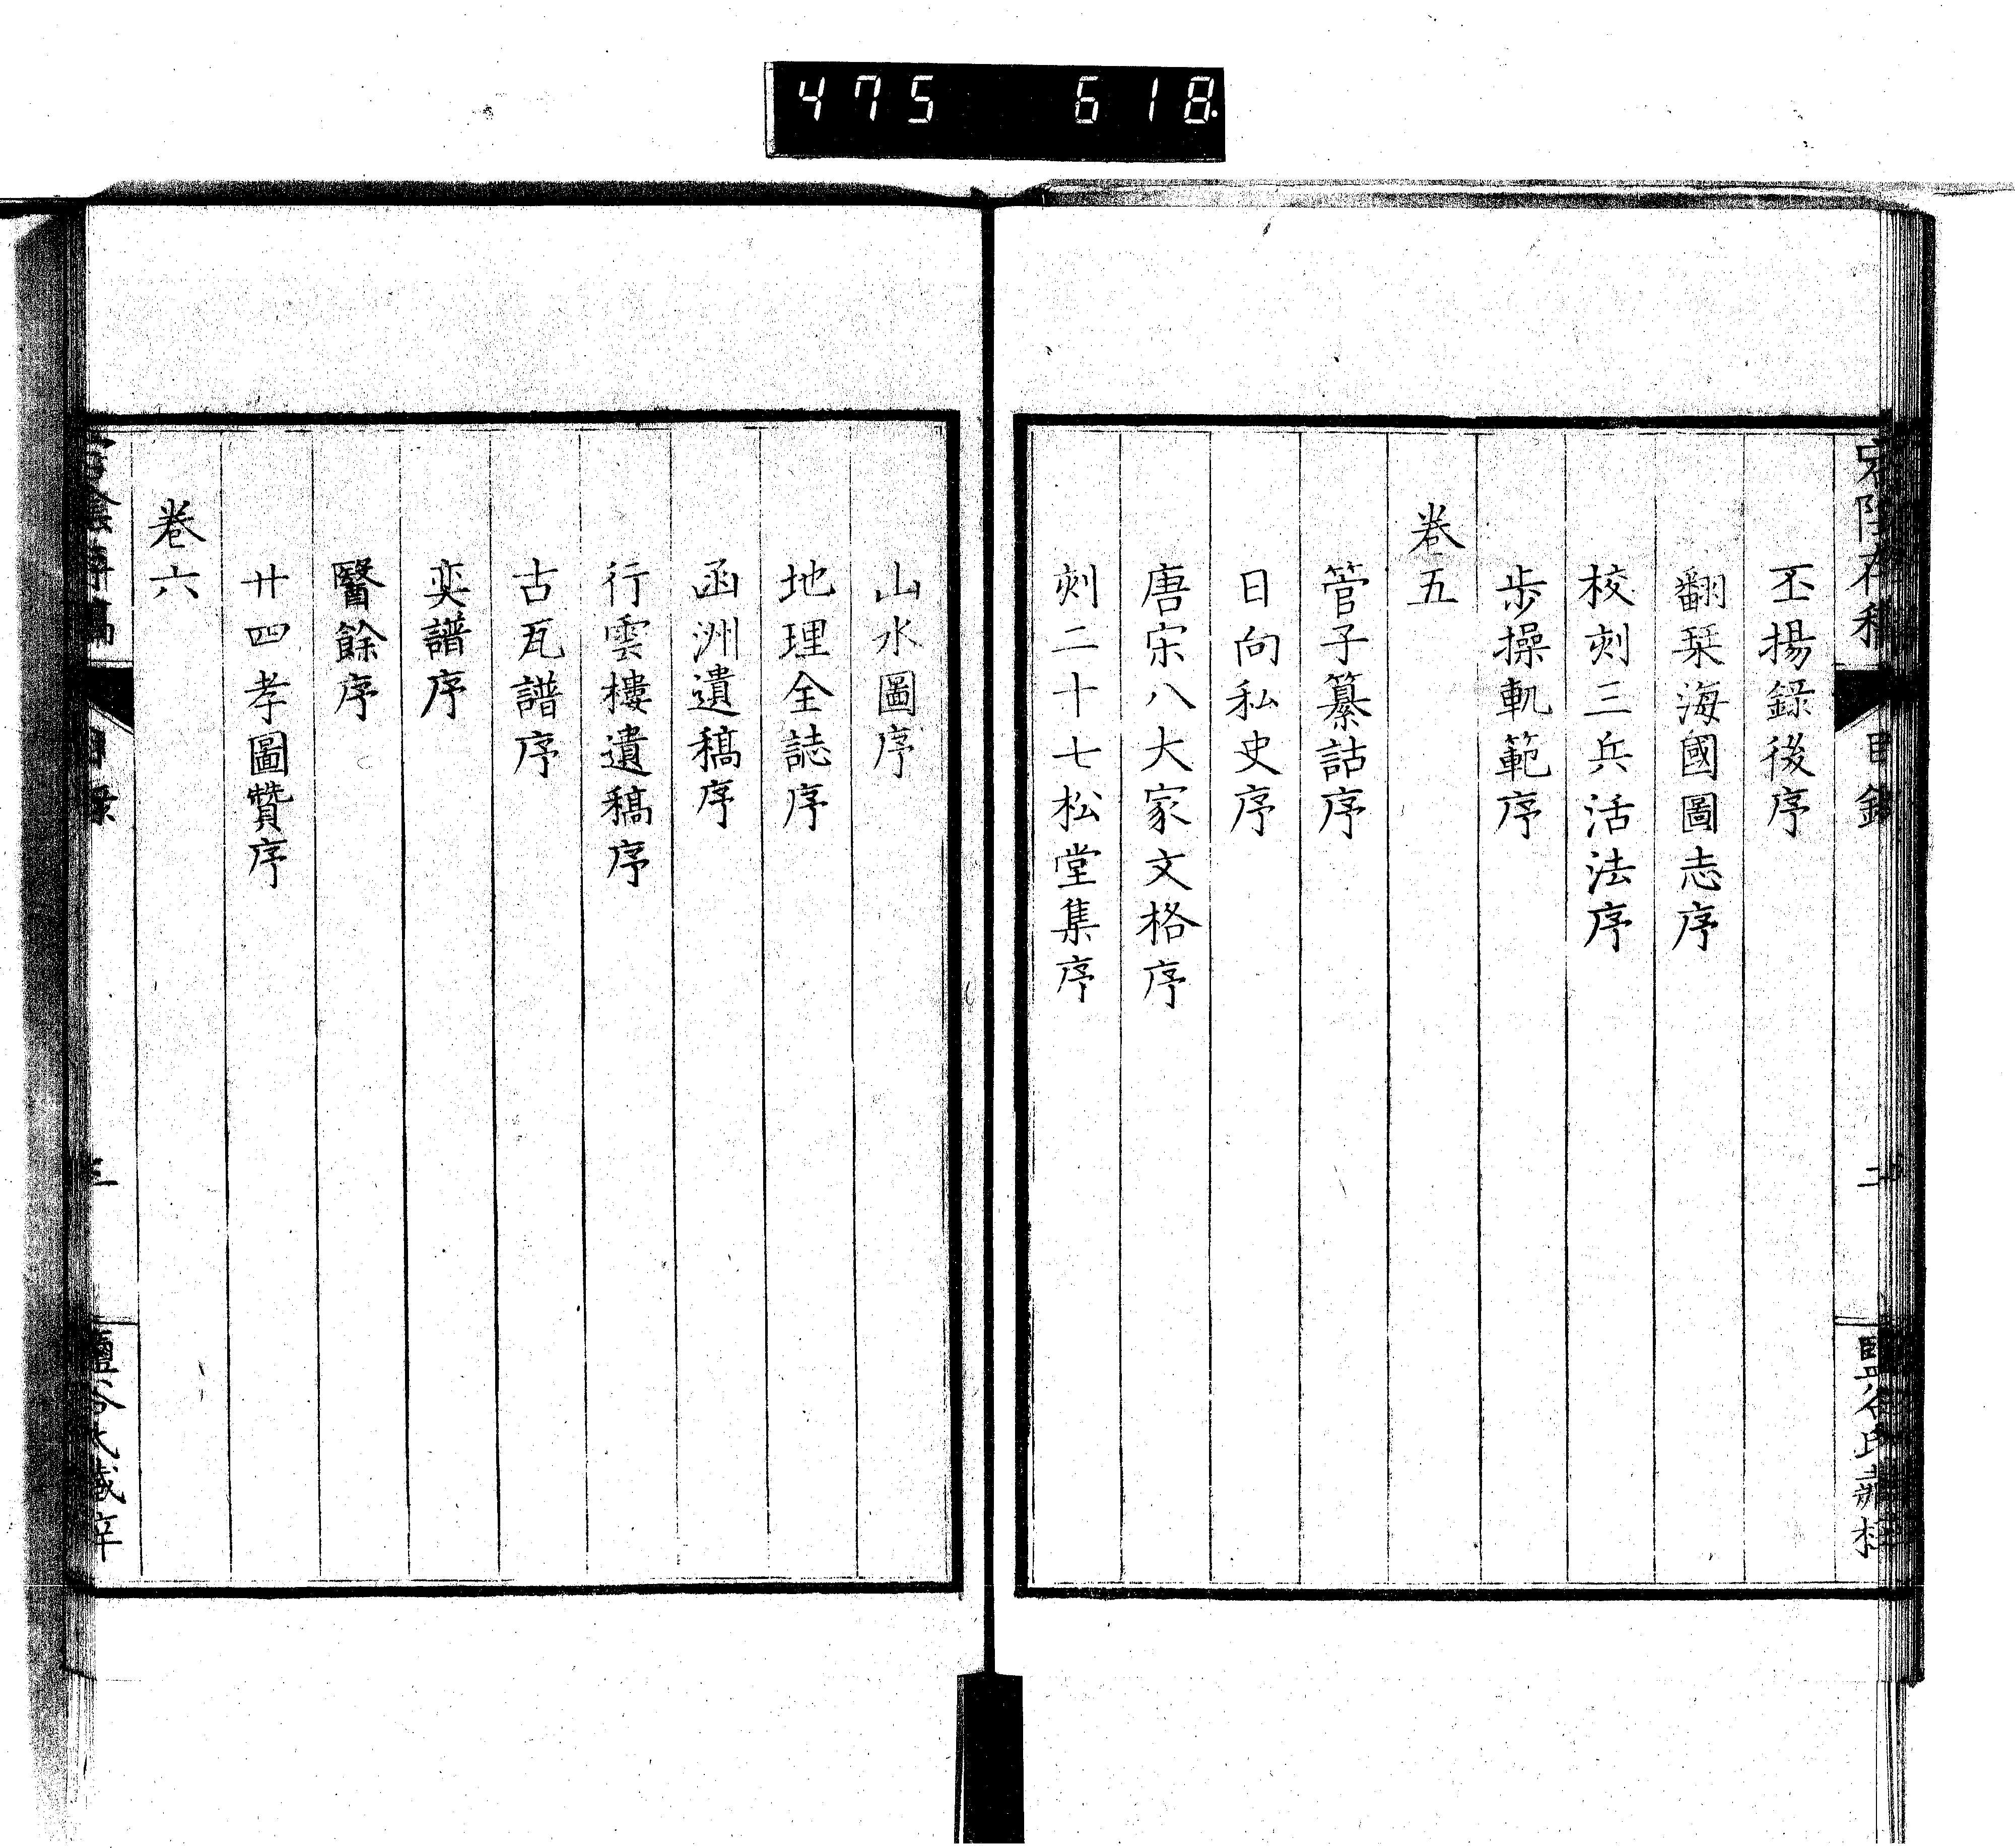 475 618
丕揚録後序
翻栞海國圖志序
校刻三兵活法序
步操軌範序
卷五
管子纂詁序
日向私史序
唐宋八大家文格序
刻二十七松堂集序
山水圖序
地理全誌序
函洲遺稿序
行雲樓遺稿序
古瓦譜序
奕譜序
醫餘序
廿四孝圖贊序
卷六